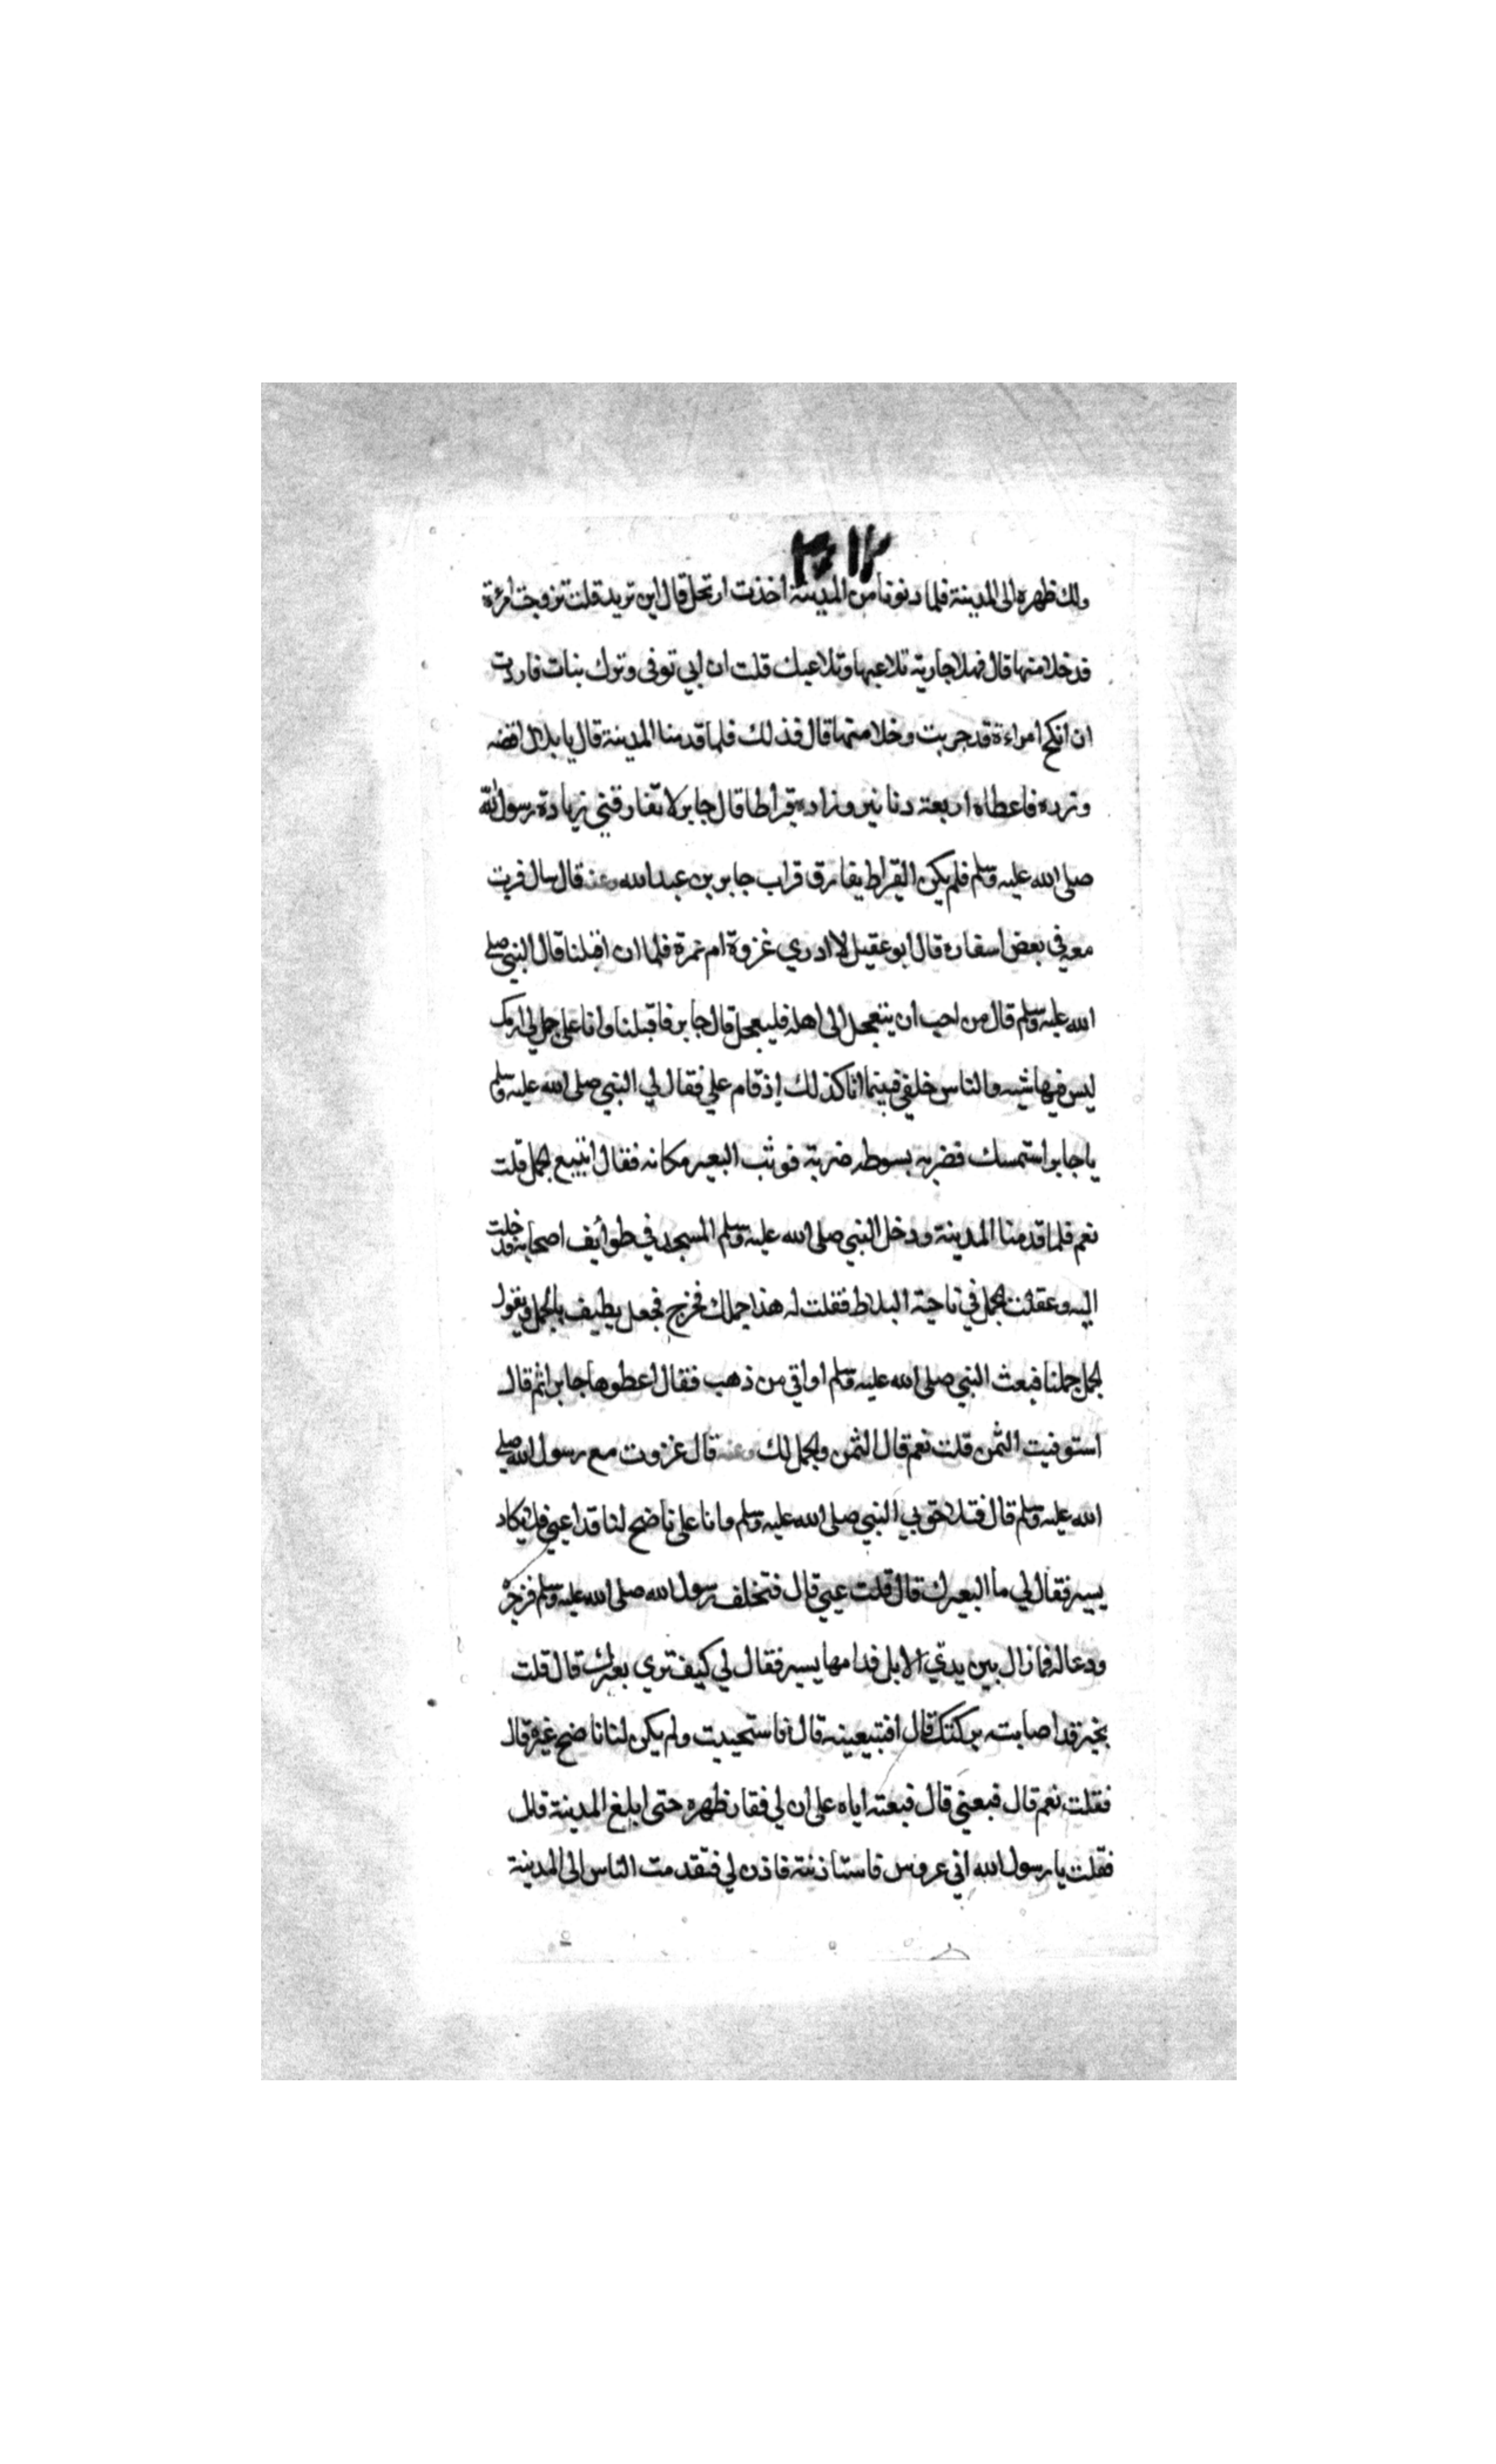 ولك ظهره الى المدينة فلما دنونا من المدينة اخذت ارتحل قال اين تريد قلت تزوجت امرءة
قد خلا منها قال فهلا جارية تلاعبها وتلاعبك قلت ان ابي توفى وترك بنات فاردت
ان انكح امراءة قد جربت وخلا منها قال فذلك فلما قدمنا المدينة قال يا بلال اقضه
وزده فاعطاه اربعة دنانير وزاده قيراطا قال جابر لا تفارقني زيادة رسول الله
صلى الله عليه وسلم فلم يكن القيراط يفارق قراب جابر بن عبد الله وعنه قال سافرت
معه في بعض اسفاره قال ابو عقيل لا ادري غزوة ام عمرة فلما ان اقبلنا قال النبي صلى
الله عليه وسلم قال من احب ان يتعجل الى اهله فليعجل قال جابر فاقبلنا وانا على جمل لي ارمك
ليس فيها شيه والناس خلفي فبينما انا كذلك إذ قام علي فقال لي النبي صلى الله عليه وسلم
يا جابر استمسك فضربه بسوطه ضربة فوثب البعير مكانه فقال اتبيع الجمل قلت
نعم فلما قدمنا المدينة ودخل النبي صلى الله عليه وسلم المسجد في طوائف اصحابه فدخلت
اليه وعقلت الجمل في ناحية البلاط فقلت له هذا جملك فخرج فجعل يطيف بالجمل ويقول
الجمل جملنا فبعث النبي صلى الله عليه وسلم اواقي من ذهب فقال اعطوها جابر اثم قال
استوفيت الثمن قلت نعم قال الثمن والجمل لك وعنه قال غزوت مع رسول الله صلى
الله عليه وسلم قال فتلاحق بي النبي صلى الله عليه وسلم وانا على ناضح لنا قد اعيى فلا يكاد
يسير فقال لي ما لبعيرك قال قلت عيي قال فتخلف رسول الله صلى الله عليه وسلم فزجره
ودعا له فما زال بين يدي الابل قدامها يسير فقال لي كيف تري بعيرك قال قلت
بخير قد اصابته بركتك قال افتبيعينه قال فاستحييت ولم يكن لنا ناضح غيره قال
فقلت نعم قال فبعني قال فبعته اياه على ان لي فقار ظهره حتى ابلغ المدينة قال
فقلت يا رسول الله اني عروس فاستاذنته فاذن لي فتقدمت الناس الى المدينة